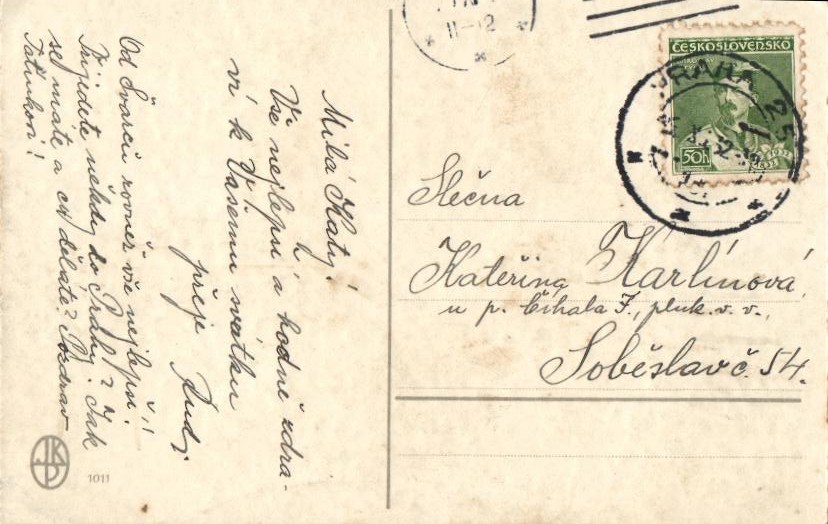 Milá Katy!
Vše nejlepší a hodně zdra-
ví k Vašemu svátku
přeje Rudy
Od Švarců rovněž vše nejlepší!
Přijedete někdy do Prahy? Jak
se máte a co děláte? Pozdrav
Tatínkovi!
JKP
1011
11-12
ČESKOSLOVENSKO
50h
1832
PRAHA 25
Slečna
Kateřina Karlínová
u p. Číhala F., pluk. v. v.,
Soběslav č. 54.